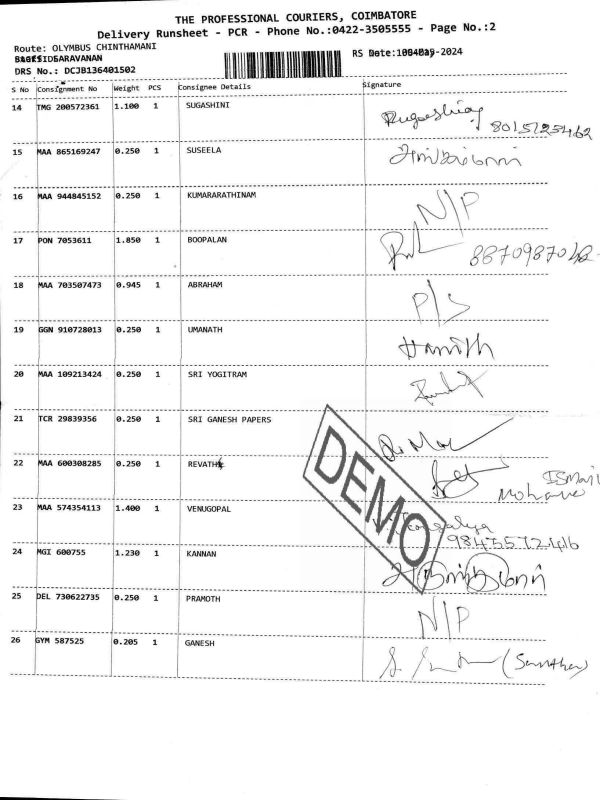 THE PROFESSIONAL COURIERS, COIMBATORE
Delivery Runsheet - PCR - Phone No.:0422-3505555 - Page No.:2
Route: OLYMBUS CHINTHAMANI
SARAVANAN
RS Date: -2024
DRS No.: DCJB136401502
S No Consignment No Weight PCS Consignee Details Signature
14 TMG 200572361 1.100 1 SUGASHINI
15 MAA 865169247 0.250 1 SUSEELA
16 MAA 944845152 0.250 1 KUMARARATHINAM N/P
17 PON 7053611 1.850 1 BOOPALAN
18 MAA 703507473 0.945 1 ABRAHAM P/S
19 GGN 910728013 0.250 1 UMANATH
20 MAA 109213424 0.250 1 SRI YOGITRAM
21 TCR 29839356 0.250 1 SRI GANESH PAPERS
22 MAA 600308285 0.250 1 REVATHI
23 MAA 574354113 1.400 1 VENUGOPAL
24 MGI 600755 1.230 1 KANNAN
25 DEL 730622735 0.250 1 PRAMOTH N/P
26 GYM 587525 0.205 1 GANESH
DEMO